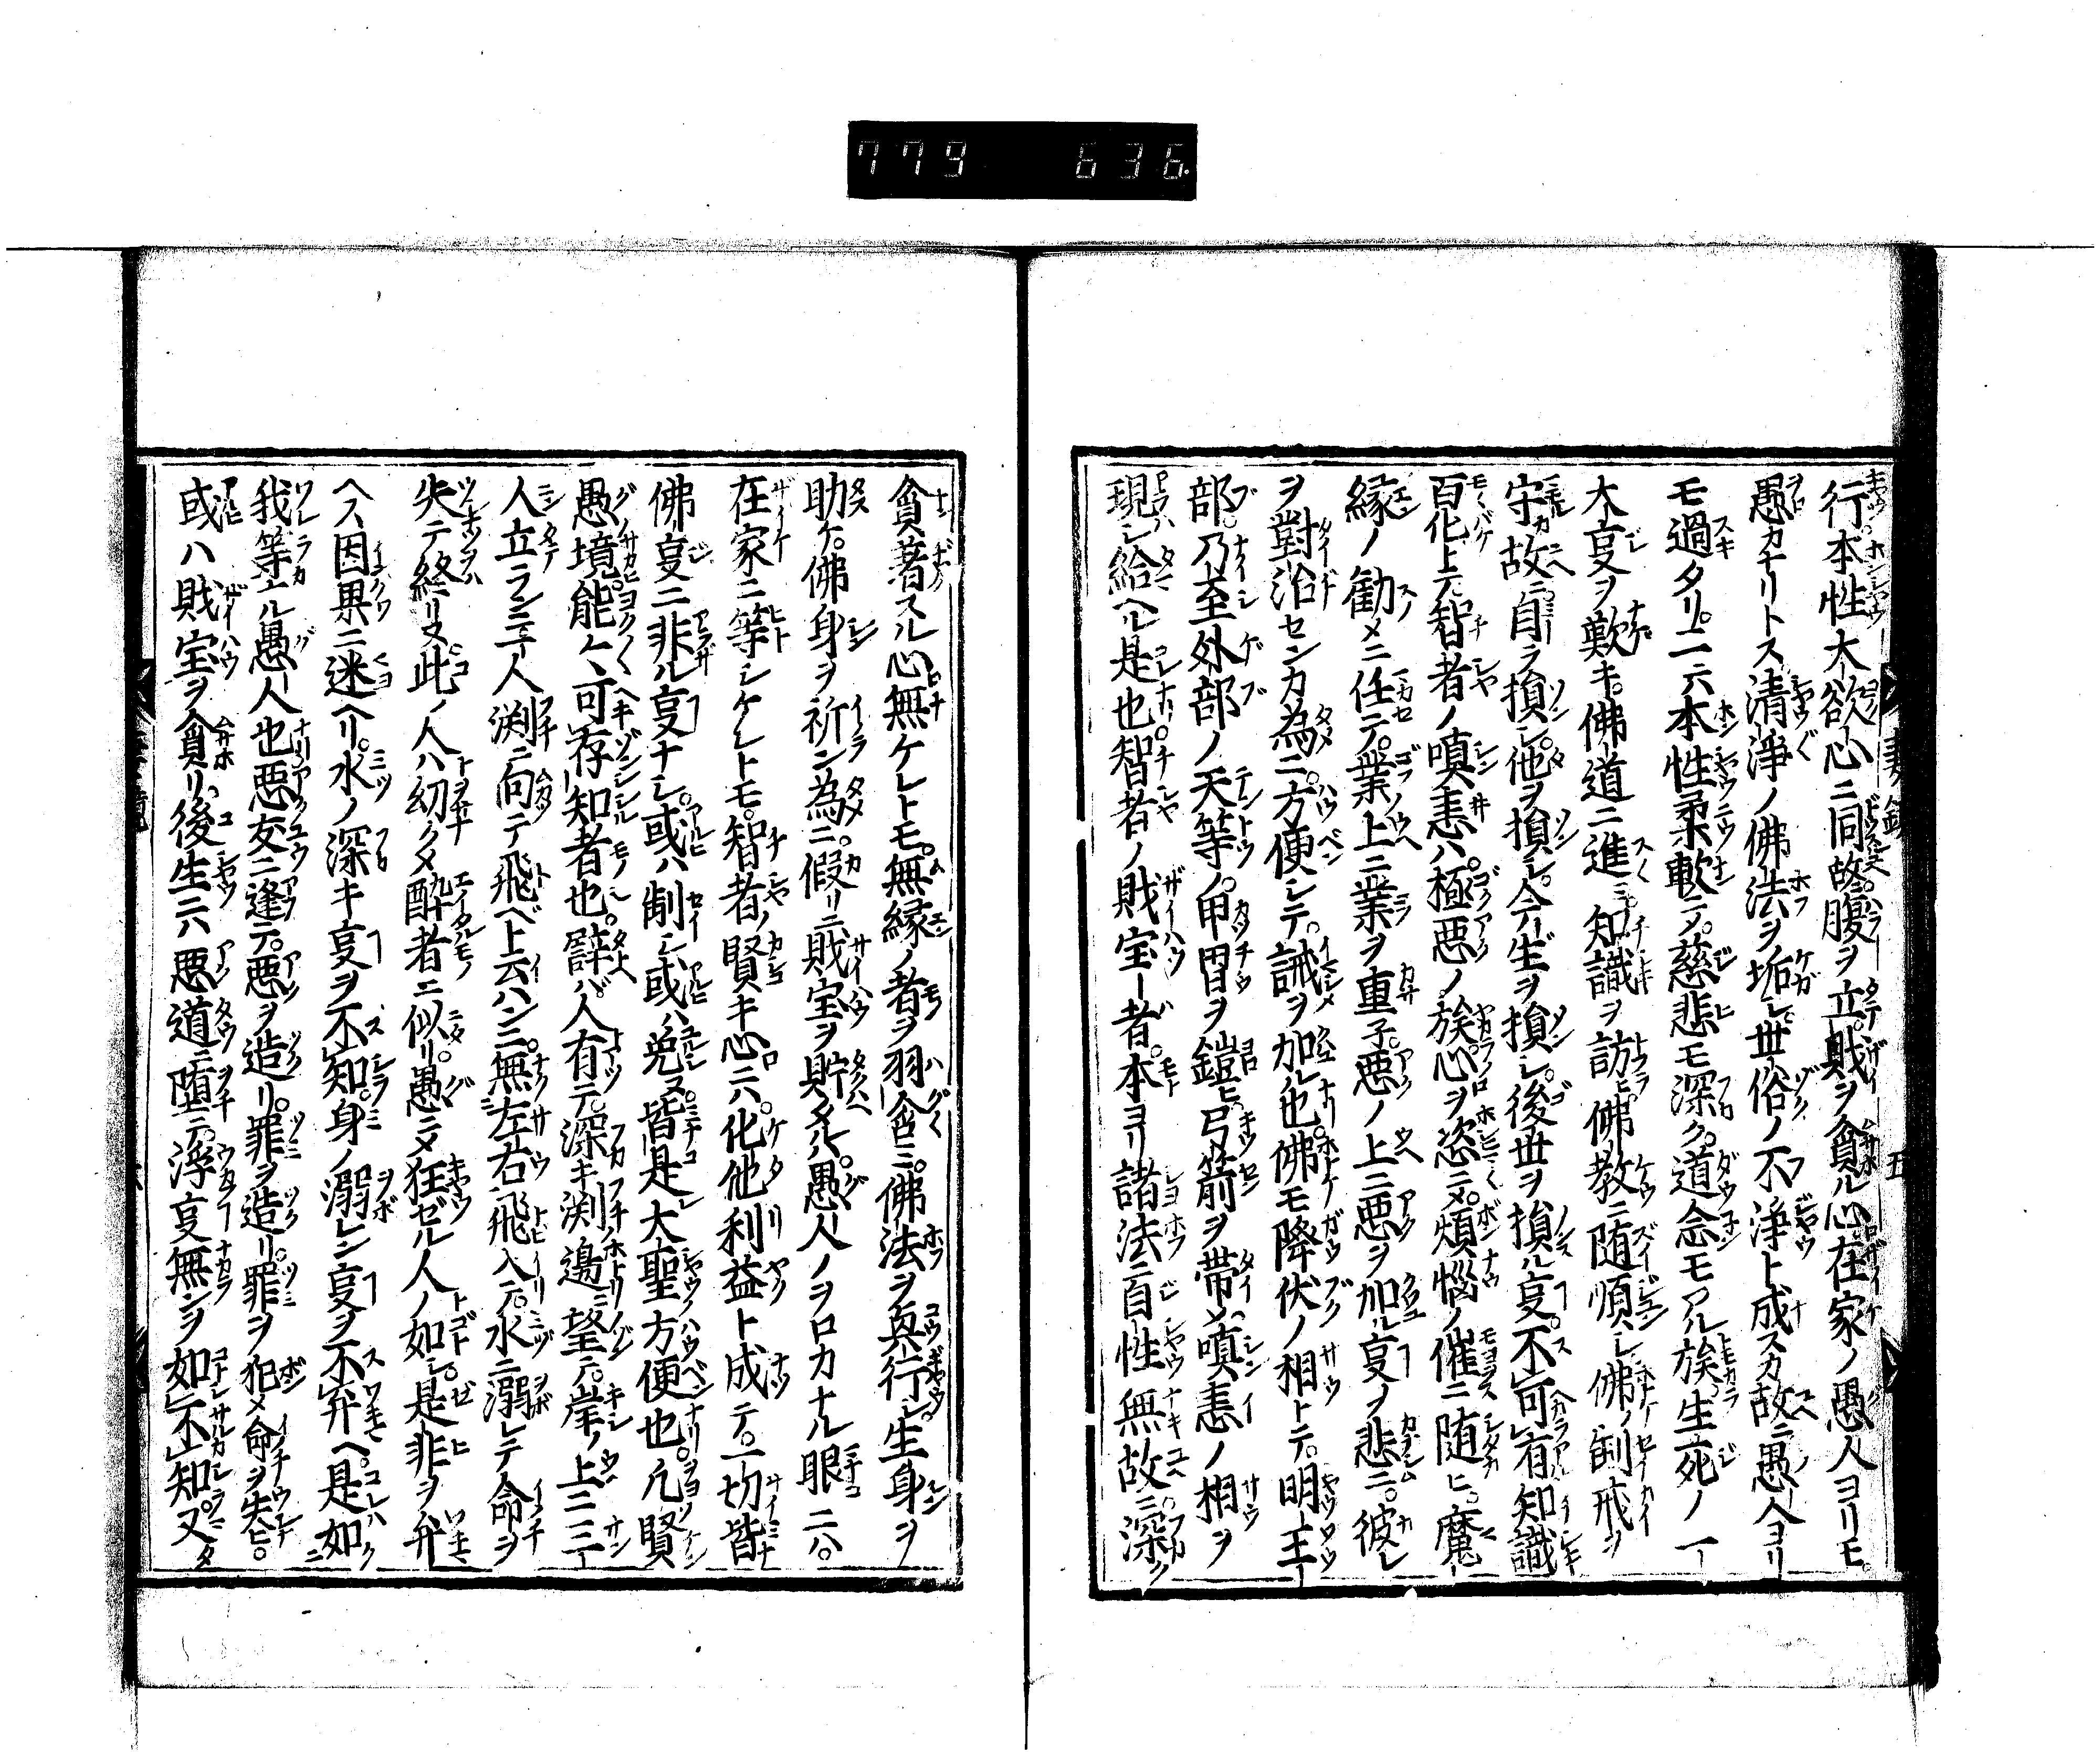 779 636
行本性大欲心ニ同故ニ腹ヲ立。財ヲ貪ル心在家ノ愚人ヨリモ。
愚カナリトス清淨ノ佛法ヲ垢シ世俗ノ不淨ト成スカ故ニ愚人ヨリ
モ過タリ。二六本性柔軟ニシテ。慈悲モ深ク。道念モアル族。生死ノ一
大事ヲ歎キ。佛道ニ進ミ知識ヲ訪ヒ。佛教ニ随順シ佛ノ制戒ヲ
守カ故ニ自ラ損シ。他ヲ損シ。今生ヲ損シ。後世ヲ損ル事。不可有知識
百化上テ智者ノ嗔恚ハ極悪ノ族心ヲ恣ニシテ。煩惱ノ催ニ随ヒ。魔
縁ノ勧メニ任テ。業ノ上ニ業ヲ重子。悪ノ上ニ悪ヲ加ル事ヲ悲ニ。彼レ
ヲ對治センカ為ニ。方便シテ。誡ヲ加ル也。佛モ降伏ノ相トテ。明王
部。乃至外部ノ天等ノ。甲冑ヲ鎧ヒ。弓箭ヲ帶シ。嗔恚ノ相ヲ
現シ給ヘル是也。智者ノ財宝ハ者。本ヨリ諸法ニ自性無故ニ。深ク
貪著スル心無ケレトモ。無縁ノ者ヲ羽含ミ。佛法ヲ興行シ。生身ヲ
助ケ。佛身ヲ祈ン為ニ。假リニ財宝ヲ貯タルハ。愚人ノヲロカナル眼ニハ。
在家ニ等シケレトモ。智者ノ賢キ心ニハ。化他利益ト成テ。一切皆
佛事ニ非ル事ナシ。或ハ制シ或ハ免ス。皆是大聖方便也。凡賢
愚境。能々可存知者也。譬バ人有テ。深キ渕ノ邊ニ望テ。岸ノ上ニ三
人立ランニ。一人渕ニ向テ飛ベト云ハンニ。無左右飛入テ。水ニ溺レテ命ヲ
失テ終リヌ。此ノ人ハ幼クシテ醉者ニ似リ。愚ニシテ狂ゼル人ノ如シ。是非ヲ弁
ヘス因果ニ迷ヘリ。水ノ深キ事ヲ不知。身ノ溺レン事ヲ不弁ヘ。是如ク
我等カル愚人也。悪友ニ逢テ。悪ヲ造リ。罪ヲ造リ。罪ヲ犯シテ命ヲ失ヒ。
或ハ財宝ヲ貪リ。後生ニハ悪道ニ堕テ。浮事無ンヲ如不知。又